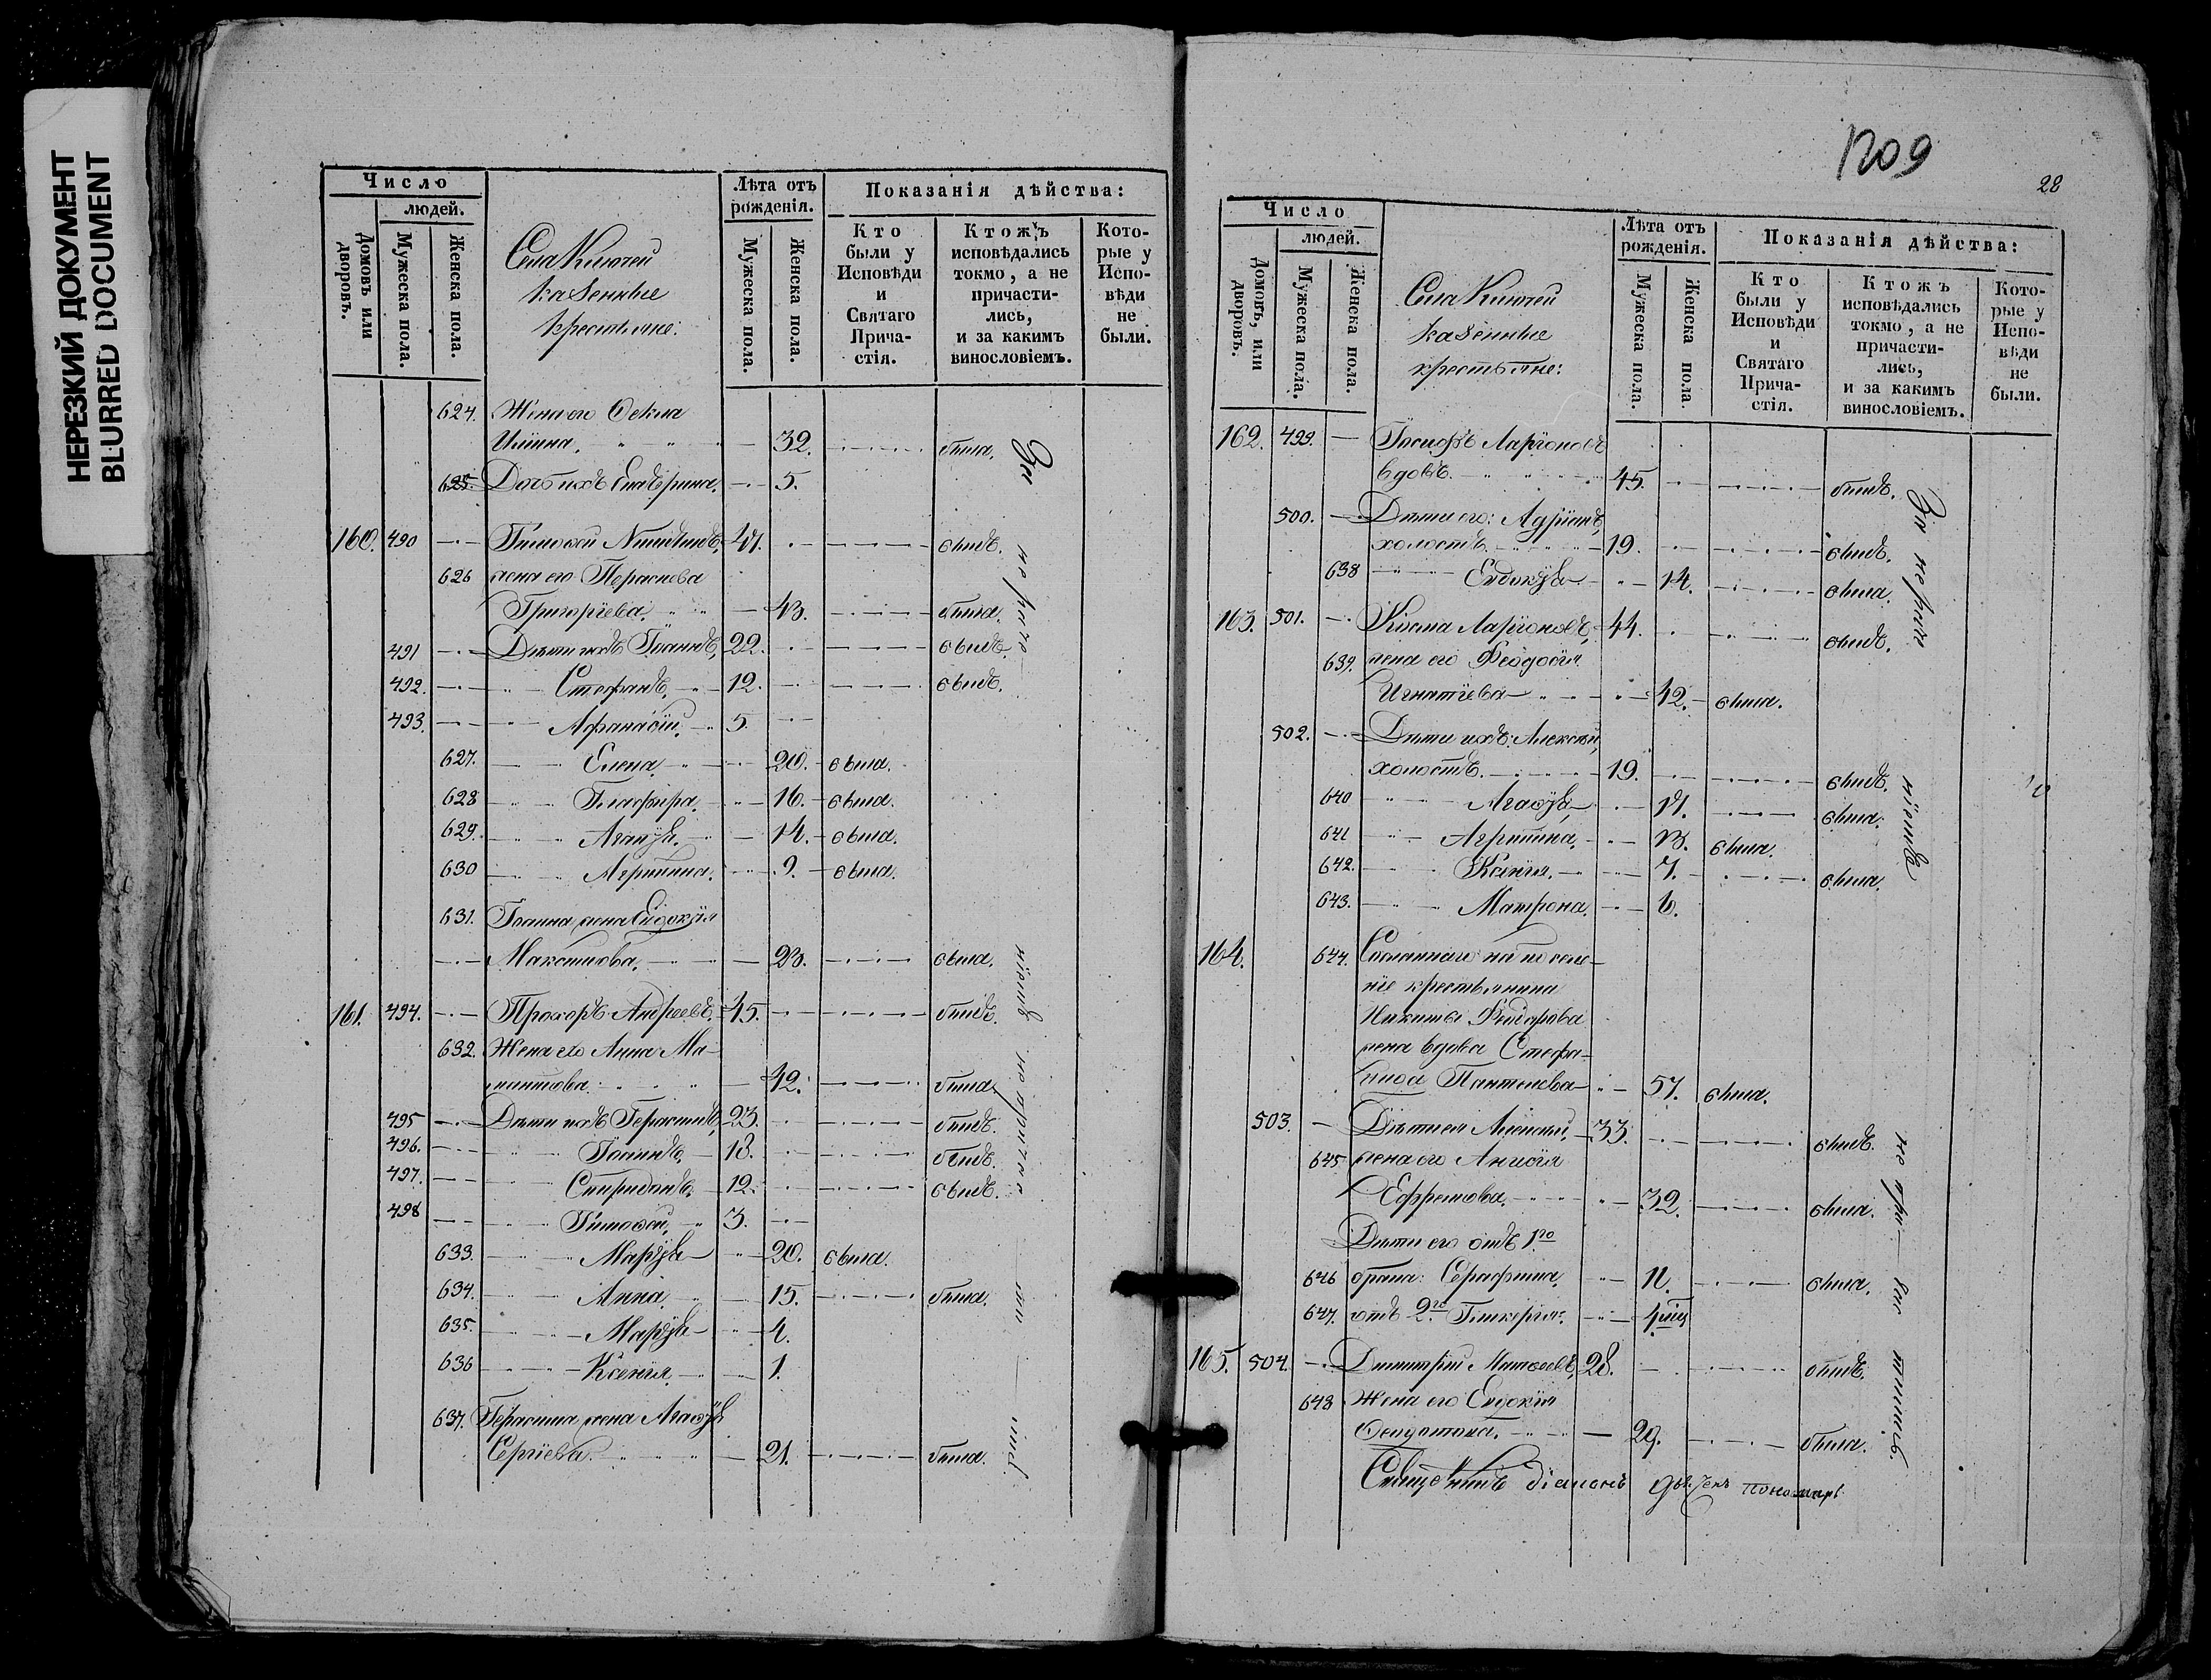 НЕРЕЗКИЙ ДОКУМЕНТ
BLURRED DOCUMENT
Число
людей.
Домовъ или дворовъ.
Мужеска пола.
Женска пола.
Села Ключей
казенные
крестьяне:
Лѣта отъ рожденія.
Мужеска пола.
Женска пола.
Показанія дѣйства:
Кто были у Исповѣди и Святаго Прича-стія.
Ктожъ исповѣдались токмо, а не причасти-лись, и за какимъ винословіемъ.
Кото-рые у Испо-вѣди не были.
624. Жена его Фекла
Ильина, 32. была.
625. Дочь ихъ Екатерина, 5.
160. 490 Тимофей 47. былъ.
626 жена его Параскева
Григорьева, 43. была.
491 Дѣти ихъ Іоаннъ, 22. былъ.
492. Стефанъ, 12. былъ.
493. Афанасій, 5.
627. Елена, 20. была.
628 Глафира, 16. была.
629. Агапія, 14. была.
630 Агриппина, 9. была.
631. Іоанна жена Евдокія
Максимова, 23. была.
161. 494. Прохоръ Андреевъ, 45. былъ.
632. Жена его Анна Ма-
42. была.
495 Дѣти ихъ Герасимъ, 23. былъ.
496. Іоаннъ, 18. былъ.
497. Спиридонъ, 12. былъ.
498 Тимофей, 3.
633. Марія 20. была.
634. Анна, 15. была.
635. Марія 4.
636 Ксенія, 1.
637. Герасима жена Агафія
Сергіева. 21. была.
За
не расте-
ніемъ
не причас-
ти-
лись.
1209
28
Число
людей.
Домовъ, или дворовъ.
Мужеска пола.
Женска пола.
Села Ключей
казенные
крестьяне:
Лѣта отъ рожденія.
Мужеска пола.
Женска пола.
Показанія дѣйства:
Кто были у Исповѣди и Святаго Прича-стія.
Ктожъ исповѣдались токмо, а не причасти-лись, и за какимъ винословіемъ.
Кото-рые у Испо-вѣди не были.
162. 499. Іосифъ Ларіоновъ
вдовъ. 45. былъ.
500. Дѣти его: Адріанъ,
холостъ. 19. былъ.
638 Евдокія 14. была.
163. 501. Косма Ларіоновъ, 44. былъ.
639. жена его Феодосія
Игнатіева 42. была.
502. Дѣти ихъ: Алексѣй,
холостъ. 19. былъ.
640 Агафія, 17. была.
641 Агриппина, 13. была.
642. Ксенія, 7. была.
643. Матрона, 6.
164. 644. Сосланнаго на поселе-
ніе крестьянина
Никиты
жена вдова Стефа-
нида 57. была.
503. Дѣти ея Алексѣй, 33. былъ.
645 жена его Анисія
Ефремова, 32. была.
Дѣти его отъ 1го
646 брака: Серафима, 11. была.
647. отъ 2го Гликерія. 4 мѣс
165. 504. Димитрій Матвеевъ, 28. былъ.
648 Жена его Евдокія
29. была.
Священникъ діаконъ дьячекъ пономарь